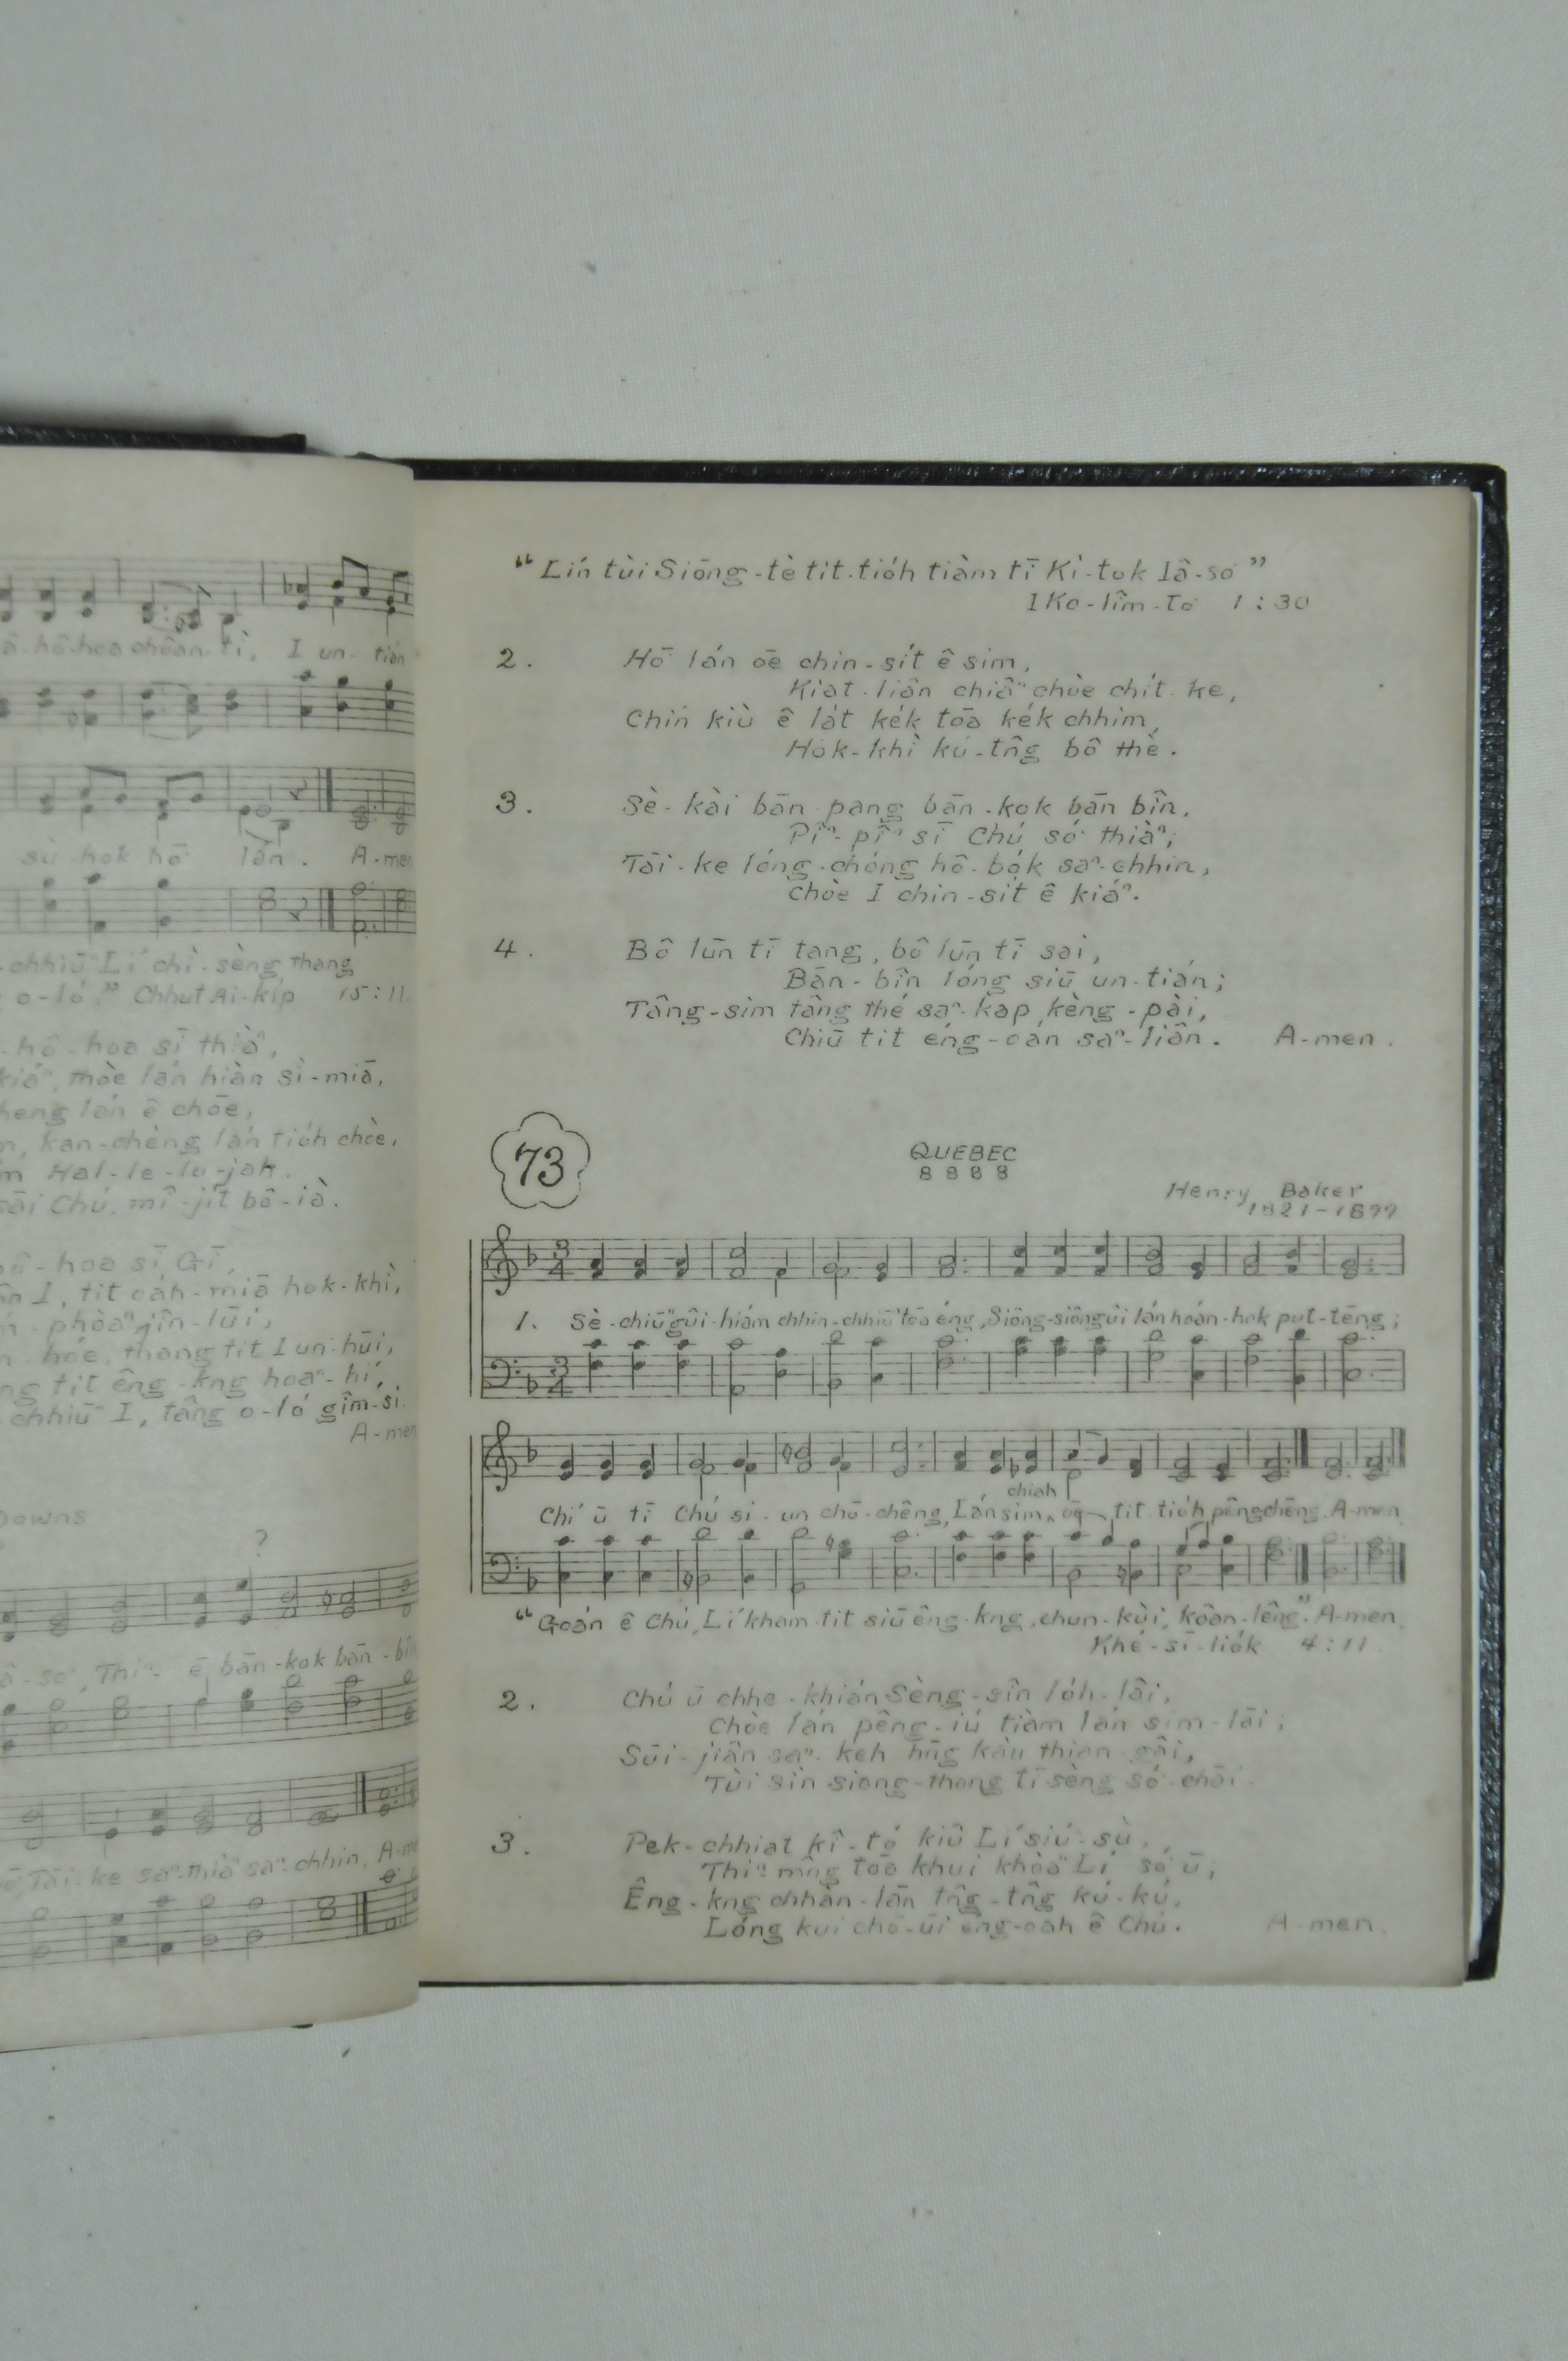 ā-hô-hoa choân-tì, I un-tián
sù hok hō͘ lán. A-men
-chhiūⁿ Lí chì-sèng thang
o-ló." Chhut Ai-ki̍p 15:11.
-hô-hoa sī thiàⁿ,
kiáⁿ, thòe lán hiàn sìⁿ-miā,
heng lán ê chōe,
kan-chèng lán tio̍h chòe.
Hal-le-lu-jah.
sāi Chú, mî-ji̍t bô-ià.
hô-hoa sī Gī,
I, tit oa̍h-miā hok-khì,
-phòaⁿ jîn-lūi,
-hóe, thang tit I un-hūi,
tit êng-kng hoaⁿ-hí,
chhiūⁿ I, tâng o-ló gîm-si.
A-men
Downs
?
â-so͘, Thiⁿ-ē bān-kok bān-bîn
Tāi-ke saⁿ-thiàⁿ saⁿ-chhin. A-me
"Lín tùi Siōng-tè tit-tio̍h tiàm tī Ki-tok Iâ-so͘"
1 Ko-lîm-to 1:30
2. Hō͘ lán ōe chin-si̍t ê sim,
Kiat-liân chiâⁿ chòe chi̍t ke,
Chín kiù ê la̍t ke̍k tōa ke̍k chhim,
Hok-khì kú-tn̂g bô thè.
3. Sè-kài bān pang bān-kok bān bîn,
Pîⁿ-pîⁿ sī Chú só͘ thiàⁿ;
Tāi-ke lóng-chóng hô-bo̍k saⁿ-chhin,
Chòe I chin-si̍t ê kiáⁿ.
4. Bô lūn tī tang, bô lūn tī sai,
Bān-bîn lóng siū un-tián;
Tâng-sim tâng thé saⁿ-kap kèng-pài,
Chiū tit éng-oán saⁿ-liân. A-men.
73
QUEBEC
8 8 8 8
Henry Baker
1821-1899
1. Sè-chiūⁿ gûi-hiám chhin-chhiūⁿ tōa éng, Siông-siông ûi lán hoán-hok put-tēng;
chiah
Chí ū tī Chú si-un chō-chêng, Lán sim ‸ ōe tit-tio̍h pêng chēng. A-men
"Goán ê Chú, Lí kham-tit siū êng-kng, chun-kùi, koân-lêng". A-men
Khé-sī-lio̍k 4:11.
2. Chú ū chhe-khián Sèng-sîn lo̍h-lâi,
Chòe lán pêng-iú tiàm lán sim-lāi;
Sūi-jiân saⁿ-keh hn̄g kàu thian-gâi,
Tùi Sîn siong-thong tī sèng só͘-chāi.
3. Pek-chhiat kî-tó kiû Lí siúⁿ-sù,
Thiⁿ mn̂g tōa khui khòaⁿ Lí só͘ ū;
Êng-kng chhàn-lān tn̂g-tn̂g kú-kú,
Lóng kui chō-ūi éng-oa̍h ê Chú. A-men.